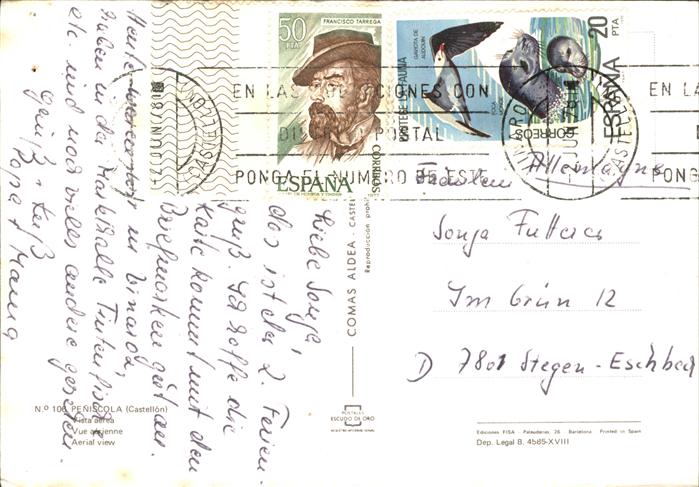 50
PTA
FRANCISCO TARREGA
ESPAÑA
CORREOS
GAVIOTA DE AUDOUIN
FOCA MONJE
20
PTA
ESPAÑA
CORREOS
EN LAS
CON
POSTAL
PONGA EL NUMERO DE ESTE
EN LA
PONG
Liebe Sonja,
das ist der 2. Ferien-
gruß. Ich hoffe die
Karte kommt mit den
Briefmarken gut an.
Heute waren wir in Vinaroz,
haben in der Markthalle Tintenfische
etc und noch vieles andere gesehen.
Gruß + Kuß
Papa + Mama
Fräulein
Allemagne
Sonja Futterer
Im Grün 12
D 7801 Stegen-Eschbach
COMAS ALDEA - CASTEL
Reproducción prohi
N.º 106 PEÑISCOLA (Castellón)
Vista aérea
Vue aérienne
Aerial view
POSTALES
ESCUDO DE ORO
Ediciones FISA - Palaudarias, 26 Barcelona Printed in Spain
Dep. Legal B. 4565-XVIII